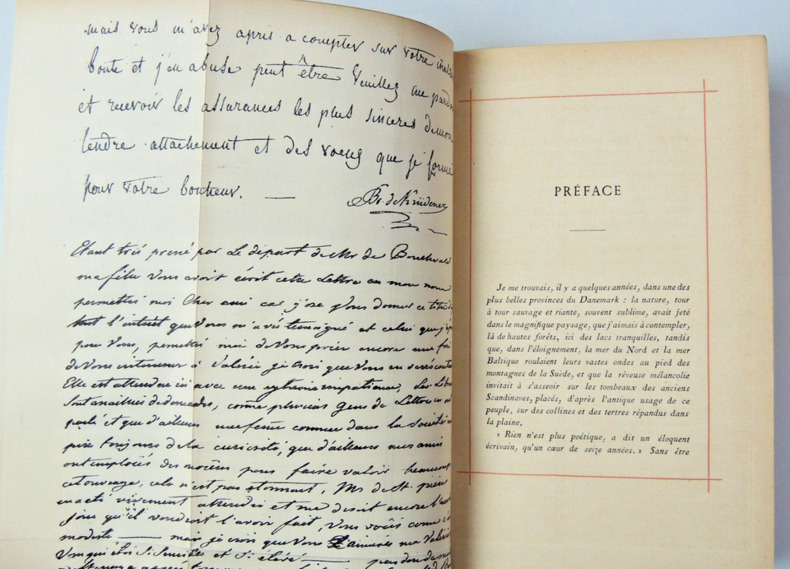 mais vous m'avez apris a compter sur votre
bonté et j'en abuse peut être Veuillez me
et recevoir les assurances les plus sinceres de mon
tendre attachement et des voeux que je forme
pour votre bonheur. —
Bs de Krüdener
Etant très pressé par Le départ de Mr de
ma fille Vous avoit écrit cette Lettre en mon nom
permettez moi Cher ami car j'ose Vous donner ce titre
tout l'intérêt que Vous m'avés temoigné et celui que
pour Vous, permettez moi de Vous prier encore une fois
de Vous interesser à Valérie je crois que Vous en
Elle est attendue ici avec une extreme impatience. Les
sont annoncées comme plusieurs Gens de Lettres en ont
parlé et que d'ailleurs une femme connue dans la Société
toujours de la curiosité, que d'ailleurs mes amis
ont employés des moiens pour faire valoir beaucoup
cet ouvrage, cela n'est pas étonnant, Mr de St. pierre
attendu et me disoit encore
qu'il voudroit l'avoir fait, Vous voiés comme
modeste — mais je crois que Vous aimerés ma Valérie
Vous qui êtes si sensible et si élevé —
PRÉFACE
Je me trouvais, il y a quelques années, dans une des
plus belles provinces du Danemark : la nature, tour
à tour sauvage et riante, souvent sublime, avait jeté
dans le magnifique paysage, que j'aimais à contempler,
là de hautes forêts, ici des lacs tranquilles, tandis
que, dans l'éloignement, la mer du Nord et la mer
Baltique roulaient leurs vastes ondes au pied des
montagnes de la Suède, et que la rêveuse mélancolie
invitait à s'asseoir sur les tombeaux des anciens
Scandinaves, placés, d'après l'antique usage de ce
peuple, sur des collines et des tertres répandus dans
la plaine.
« Rien n'est plus poétique, a dit un éloquent
écrivain, qu'un cœur de seize années. » Sans être